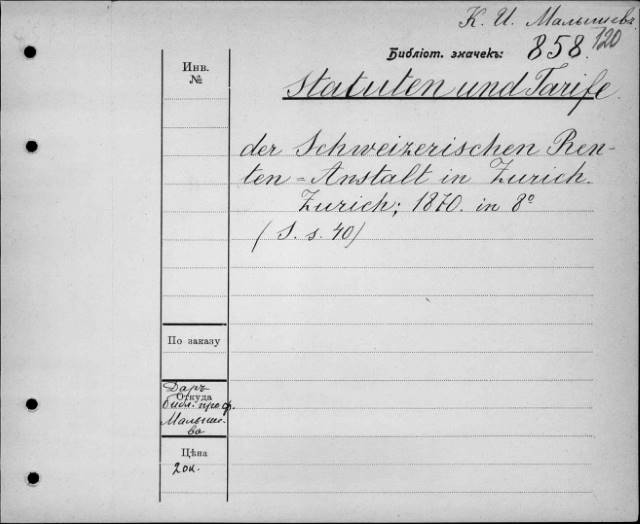 К. И. Малышевъ
Библіот. значекъ: 858.120
Инв.
№
Statuten und Tarife
der Schweizerischen Ren-
ten-Anstalt in Zürich.
Zürich; 1870. in 8º
(S. s. 40)
По заказу
Даръ
Откуда
библ. проф.
Малыше-
ва
Цѣна
20к.